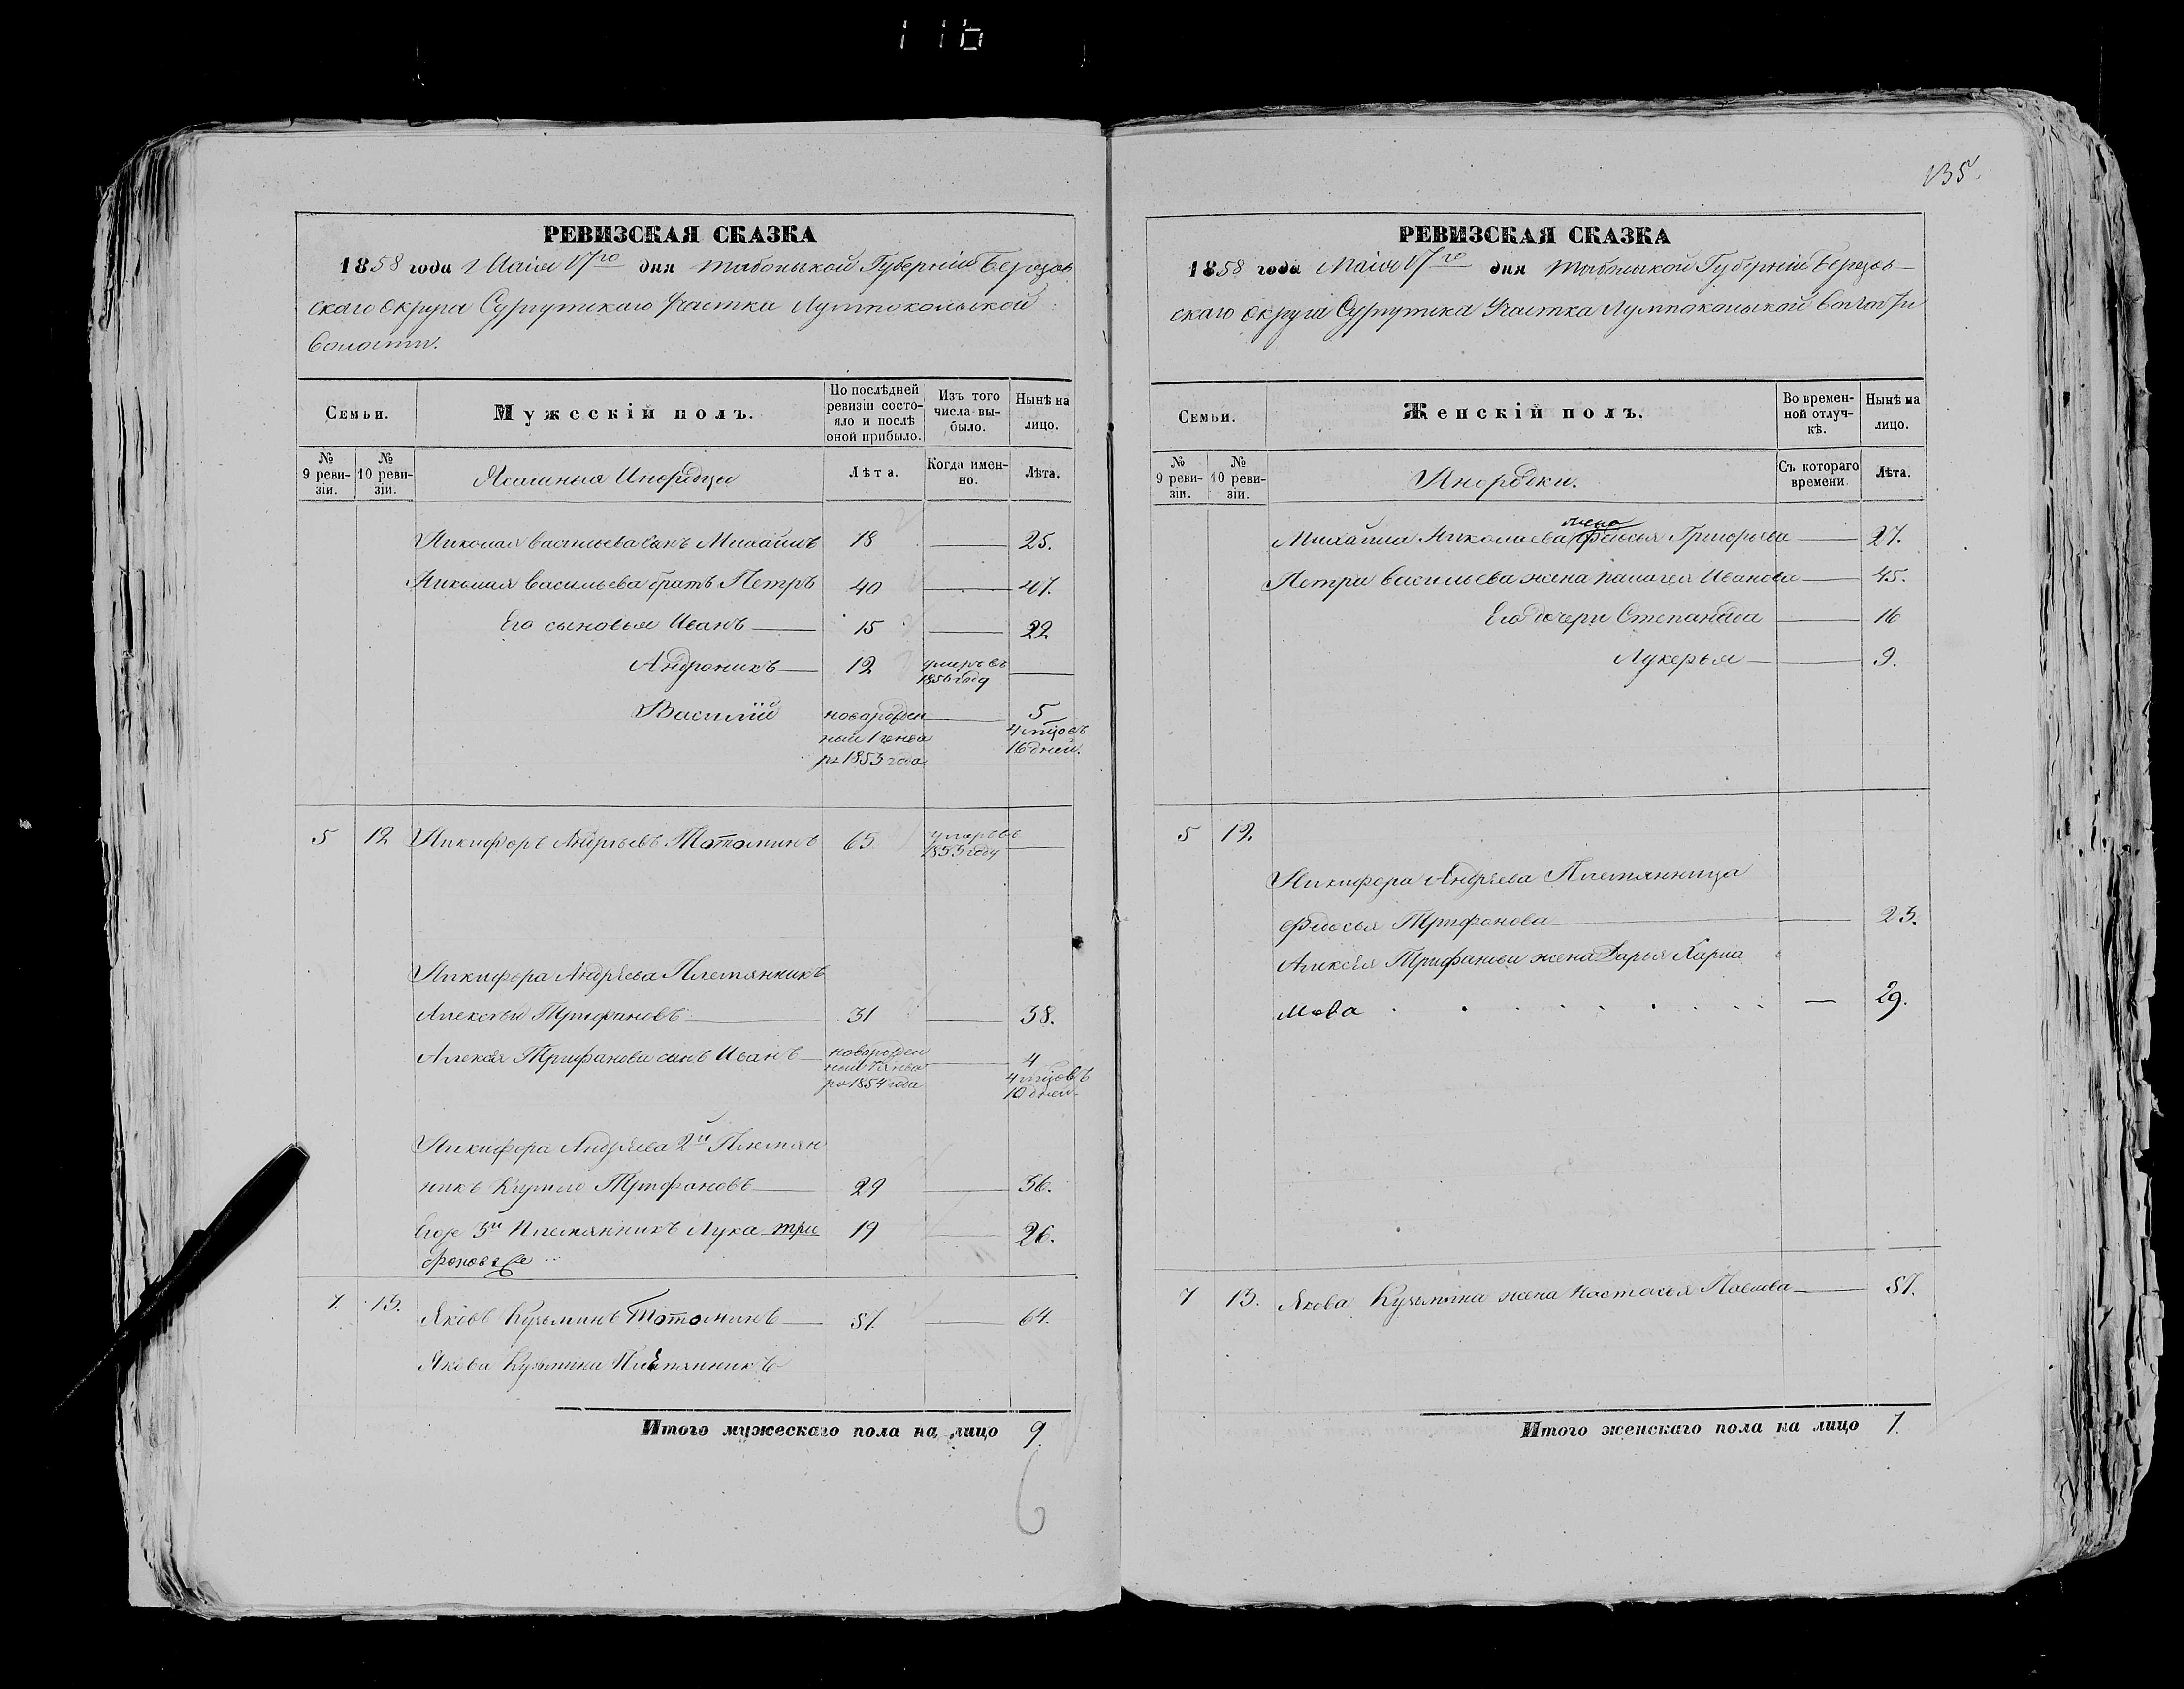 116
135.
РЕВИЗСКАЯ СКАЗКА
1858 года Маія 17го дня Тобольской Губерніи Березов
скаго округа Сургутскаго Участка Лумпокольской
Волости.
Семьи.
Мужескій полъ.
По послѣдней ревизіи состояло и послѣ оной прибыло.
Изъ того числа выбыло.
Нынѣ на лицо.
№ 9 ревизіи.
№ 10 ревизіи.
Ясашныя Инородцы
Лѣта.
Когда именно.
Лѣта.
Николая Васильева сынъ Михайлъ 18 — 25.
Николая Васильева братъ Петръ 40 — 47.
Его сыновья Иванъ — 15 — 22
Андроникъ — 12 умеръ въ 1856 году —
Василій новорожденный 1 генваря 1853 года — 5 4 мѣсяцовъ 16 дней.
5 12 Никифоръ Андреевъ Тотоминъ 65 умеръ въ 1855 году —
Никифора Андреева Племянникъ
Алексѣй Трифановъ — 31 — 38.
Алексѣя Трифанова сынъ Иванъ — новорожденный 7 января 1854 года — 4 4 мѣсяцовъ 10 дней.
Никифора Андреева 2й Племян
никъ Кирило Трифоновъ — 29 — 36.
Егоже 3й Племянникъ Лука Три 19 — 26.
фоновъ
7. 13. Яковъ Кузьминъ Тотоминъ — 57. — 64.
Якова Кузьмина Племянникъ
Итого мужескаго пола на лицо 9.
6
РЕВИЗСКАЯ СКАЗКА
1858 года Маія 17го дня Тобольской Губерніи Березов
скаго округа Сургутска Участка Лумпокольской Волости
Семьи.
Женскій полъ.
Во временной отлучкѣ.
Нынѣ на лицо.
№ 9 ревизіи.
№ 10 ревизіи.
Инородки.
Съ котораго времени.
Лѣта.
жена
Михайла Николаева Федосья Григорьева — 27.
Петра Васильева жена Палагея Иванова — 45.
Его дочери Степанида — 16
Лукерья — — 9.
5 12.
Никифора Андреева Племянница
Федосья Трифонова — — 23.
Алексѣя Трифанова жена Дарья Харла
мова — 29.
7 13. Якова Кузьмина жена Настасья Павлова — 57.
Итого женскаго пола на лицо 7.